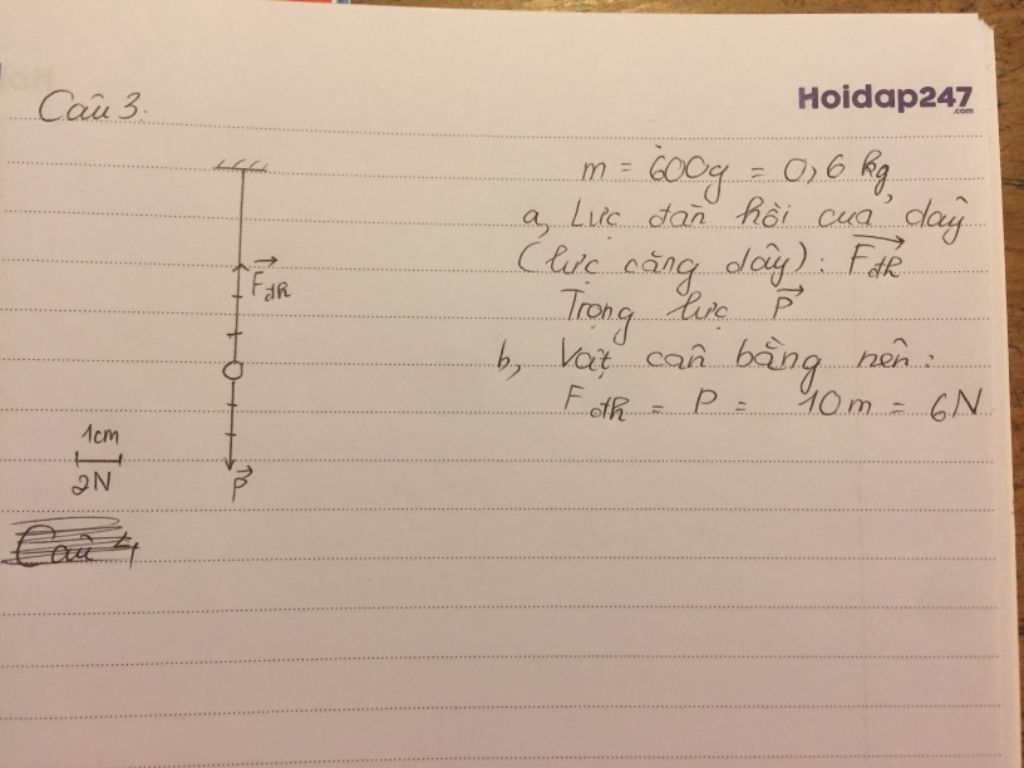 Câu 3.
Hoidap247
.com
m = 600g = 0,6 kg
a, Lực đàn hồi của dây
(lực căng dây): F đh
Trọng lực P
b, Vật cân bằng nên:
F đh = P = 10m = 6N
F đh
1cm
2N
P
Câu 4